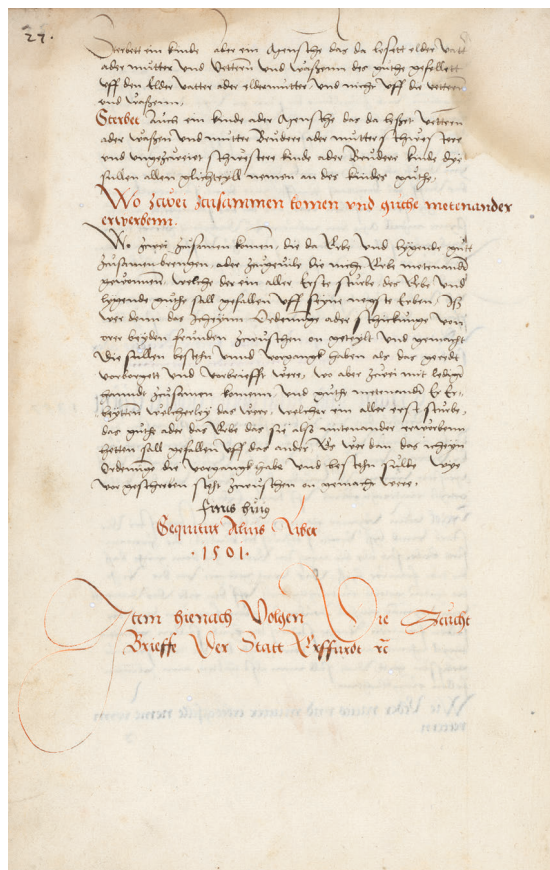 27.
Sterbett ein kinde aber ein mensche das da lesett elder vatt
ader mutter vnd vettern vnd waßenn des guthe gefellett
vff den elder vatter ader eldermutter vnd nicht vff die vettern
vnd waßenn.
Sterbet auch ein kinde ader mensche das da leßet vettern
ader waßen vnd mutter Brudere ader mutter schwestere
vnd vngezweiet schwestere kinde ader Brudere kinde dye
sullen allen glichteyll nemen an des kindes guthe.
Wo zwei zusammen komen vnd guthe metenander
erwerbenn.
Wo zwei zusamen komen, die da Erbe vnd hygende gutt
zusamen brengen, ader zugewile die nicht Erbe metenand
gewonnen, welche der ein aller erste sturbe, des Erbe vnd
hygende guthe sall gefallen vff syne negste erben, Eß
were denn das Ordenunge ader schickunge von
orer beyden frunden zewuschen on geteylt vnd gemacht
Die sullen bestehn vnnd vorgangk haben als das geredt
vorborgett vnd vorbriefft were, wo aber zwei mit ledige
handt zusamen komenn, vnd guthe metenand er
welcherley das were, welcher ein aller erst sturbe,
das guthe ader das Erbe das sie alß mitenander erworbenn
hetten sall gefallen vff das ander, Es wer dan das
Ordenunge die vorgangk habe vnd bestehn sulde wye
vor geschreben steht zewuschen on gemacht were.
Finis huius
Sequitur Alius Liber
· 1 5 0 1 ·
Item hienach Volgen Die Zcucht
Brieffe Der Statt Erffurdt rc